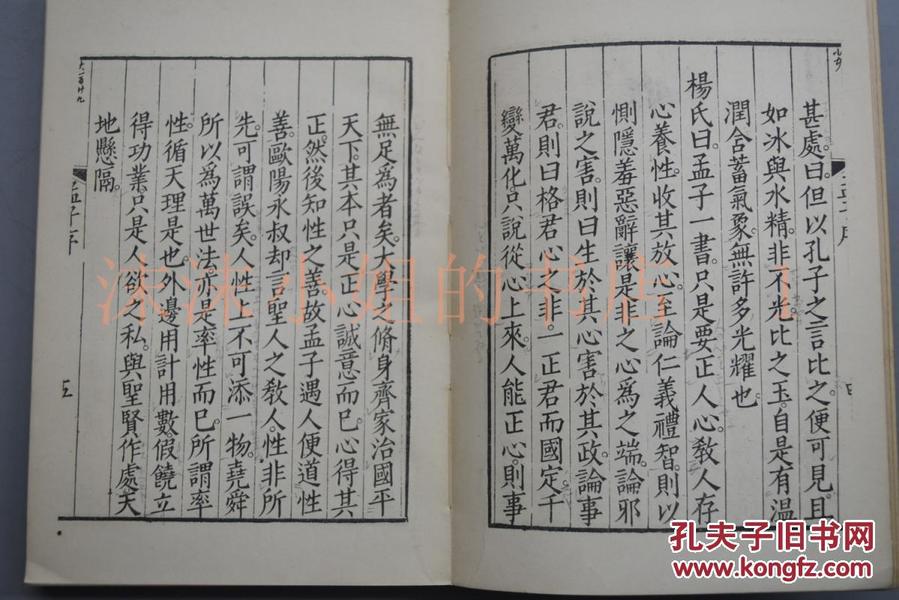 甚處。曰。但以孔子之言比之。便可見。且
如冰與水精。非不光。比之玉。自是有溫
潤含蓄氣象。無許多光耀也。
楊氏曰。孟子一書。只是要正人心。教人存
心養性。收其放心。至論仁義禮智。則以
惻隱羞惡辭讓是非之心為之端。論邪
說之害。則曰生於其心。害於其政。論事
君。則曰格君心之非。一正君而國定。千
變萬化。只說從心上來。人能正心。則事
無足為者矣。大學之脩身齊家治國平
天下。其本只是正心誠意而已。心得其
正。然後知性之善。故孟子遇人便道性
善。歐陽永叔却言聖人之教人。性非所
先。可謂誤矣。人性上不可添一物。堯舜
所以為萬世法。亦是率性而已。所謂率
性。循天理是也。外邊用計用數。假饒立
得功業。只是人欲之私。與聖賢作處。天
地懸隔。
孟子序
五
沐沐小姐的书店
孔夫子旧书网
www.kongfz.com